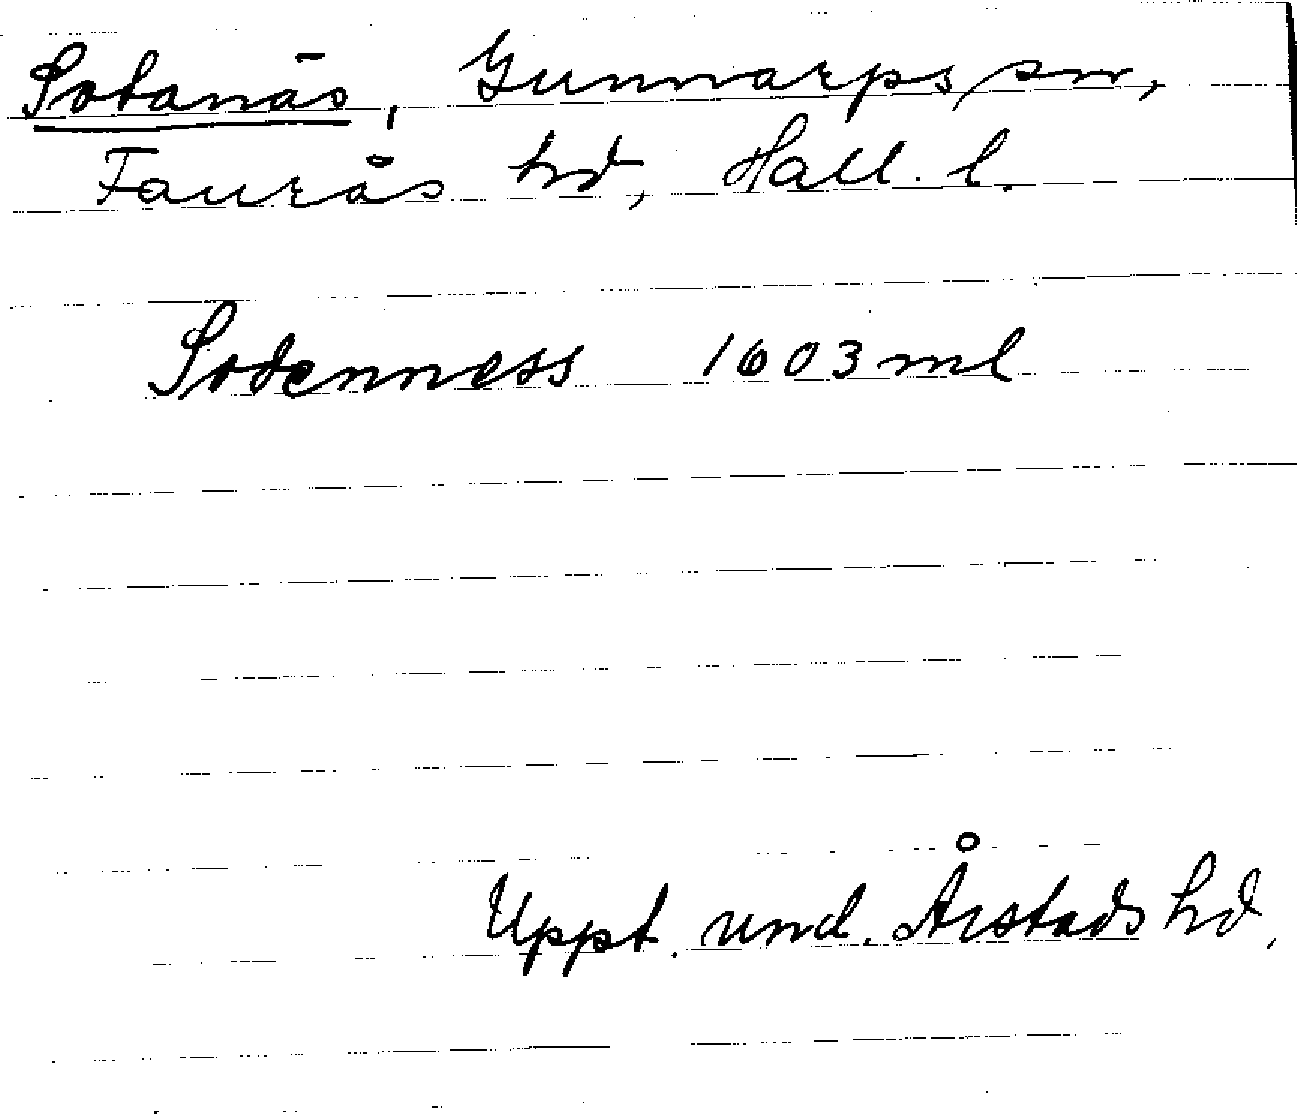 Sotanäs, Gunnarps sn,
Faurås hd, Hall. l.
Sodenness 1603 ml
Uppt. und. Årstads hd,